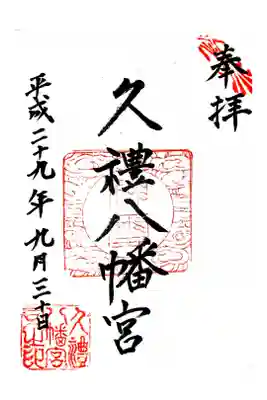 奉拝
久禮八幡宮
平成二十九年九月三十日
久禮
八幡宮
之印